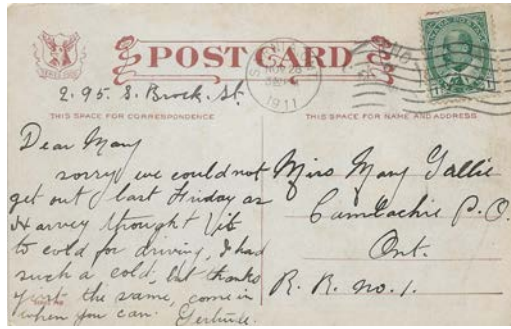 POST CARD
NOV 28
1911
CANADA POSTAGE
2.95. S. Brock. St.
THIS SPACE FOR CORRESPONDENCE
THIS SPACE FOR NAME AND ADDRESS
Dear Mary
sorry we could not
get out last Friday as
Harvey throught it
to cold for driving, I had
such a cold, but thanks
just the same, come in
when you can. Gertrude.
Miss Mary Gallie
Camlachie P.O.
Ont.
R. R. No. 1.